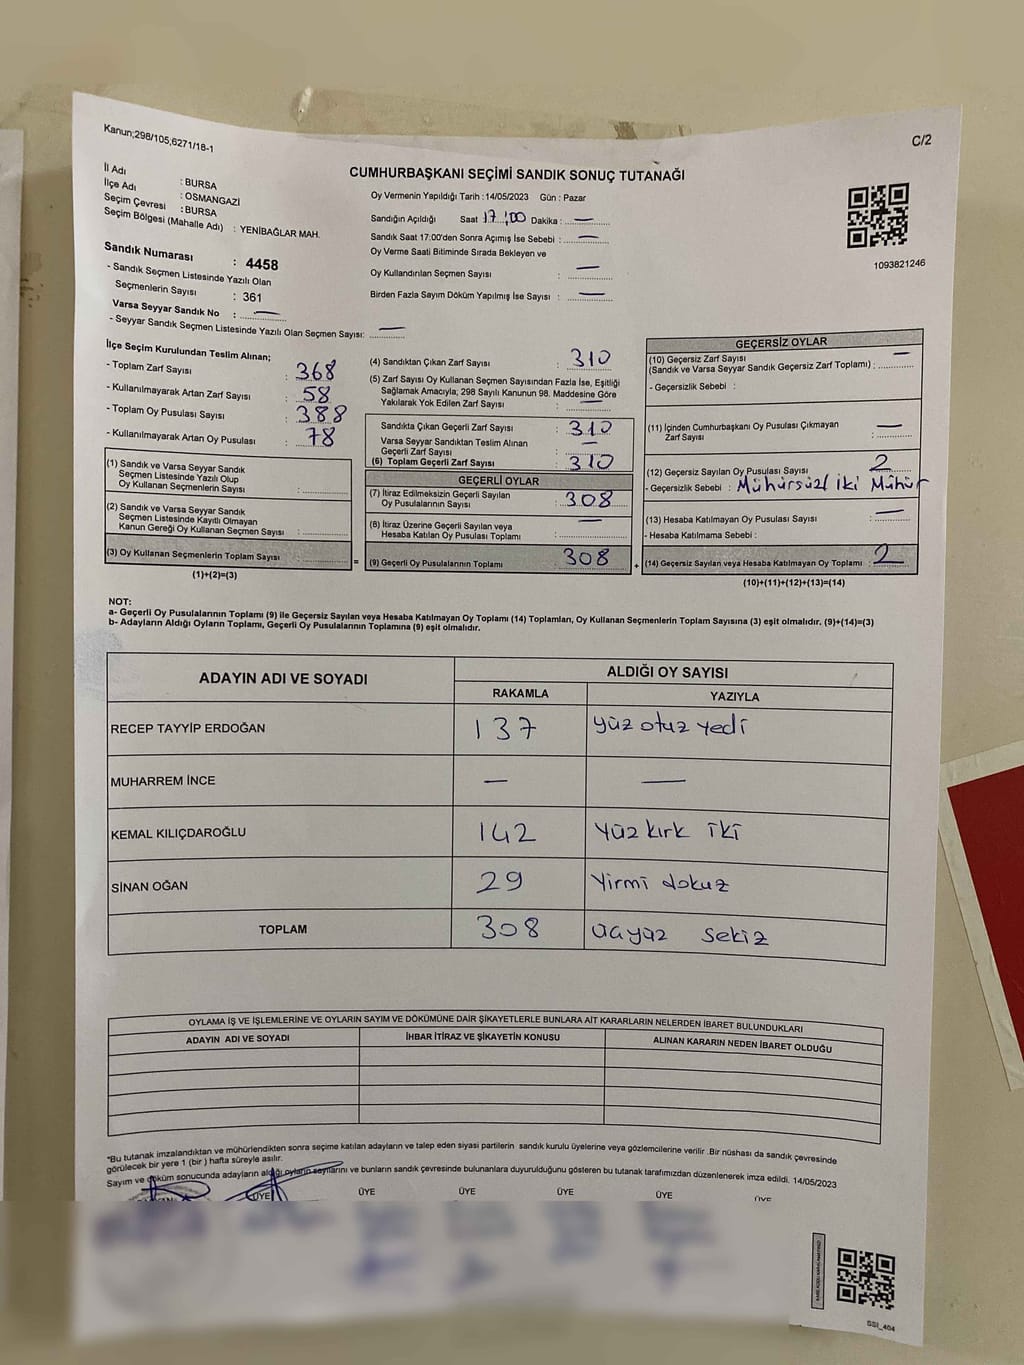 Kanun;298/105,6271/18-1
C/2
CUMHURBAŞKANI SEÇİMİ SANDIK SONUÇ TUTANAĞI
İl Adı : BURSA
İlçe Adı : OSMANGAZİ
Seçim Çevresi : BURSA
Seçim Bölgesi (Mahalle Adı) : YENİBAĞLAR MAH.
Sandık Numarası : 4458
- Sandık Seçmen Listesinde Yazılı Olan
Seçmenlerin Sayısı : 361
Varsa Seyyar Sandık No : —
- Seyyar Sandık Seçmen Listesinde Yazılı Olan Seçmen Sayısı: —
Oy Vermenin Yapıldığı Tarih : 14/05/2023 Gün : Pazar
Sandığın Açıldığı Saat 17:00 Dakika : —
Sandık Saat 17:00'den Sonra Açımış İse Sebebi : —
Oy Verme Saati Bitiminde Sırada Bekleyen ve
Oy Kullandırılan Seçmen Sayısı : —
Birden Fazla Sayım Döküm Yapılmış İse Sayısı : —
1093821246
İlçe Seçim Kurulundan Teslim Alınan;
- Toplam Zarf Sayısı : 368
- Kullanılmayarak Artan Zarf Sayısı : 58
- Toplam Oy Pusulası Sayısı : 388
- Kullanılmayarak Artan Oy Pusulası : 78
(1) Sandık ve Varsa Seyyar Sandık
Seçmen Listesinde Yazılı Olup
Oy Kullanan Seçmenlerin Sayısı :
(2) Sandık ve Varsa Seyyar Sandık
Seçmen Listesinde Kayıtlı Olmayan
Kanun Gereği Oy Kullanan Seçmen Sayısı :
(3) Oy Kullanan Seçmenlerin Toplam Sayısı :
(1)+(2)=(3)
=
(4) Sandıktan Çıkan Zarf Sayısı : 310
(5) Zarf Sayısı Oy Kullanan Seçmen Sayısından Fazla İse, Eşitliği
Sağlamak Amacıyla; 298 Sayılı Kanunun 98. Maddesine Göre
Yakılarak Yok Edilen Zarf Sayısı : —
Sandıkta Çıkan Geçerli Zarf Sayısı : 310
Varsa Seyyar Sandıktan Teslim Alınan
Geçerli Zarf Sayısı : —
(6) Toplam Geçerli Zarf Sayısı : 310
GEÇERLİ OYLAR
(7) İtiraz Edilmeksizin Geçerli Sayılan
Oy Pusulalarının Sayısı : 308
(8) İtiraz Üzerine Geçerli Sayılan veya
Hesaba Katılan Oy Pusulası Toplamı : —
(9) Geçerli Oy Pusulalarının Toplamı : 308
+
GEÇERSİZ OYLAR
(10) Geçersiz Zarf Sayısı
(Sandık ve Varsa Seyyar Sandık Geçersiz Zarf Toplamı) : —
- Geçersizlik Sebebi :
(11) İçinden Cumhurbaşkanı Oy Pusulası Çıkmayan
Zarf Sayısı : —
(12) Geçersiz Sayılan Oy Pusulası Sayısı : 2
- Geçersizlik Sebebi : Mühürsüz/ iki Mühür
(13) Hesaba Katılmayan Oy Pusulası Sayısı : —
- Hesaba Katılmama Sebebi :
(14) Geçersiz Sayılan veya Hesaba Katılmayan Oy Toplamı : 2
(10)+(11)+(12)+(13)=(14)
NOT:
a- Geçerli Oy Pusulalarının Toplamı (9) ile Geçersiz Sayılan veya Hesaba Katılmayan Oy Toplamı (14) Toplamları, Oy Kullanan Seçmenlerin Toplam Sayısına (3) eşit olmalıdır. (9)+(14)=(3)
b- Adayların Aldığı Oyların Toplamı, Geçerli Oy Pusulalarının Toplamına (9) eşit olmalıdır.
ADAYIN ADI VE SOYADI ALDIĞI OY SAYISI
RAKAMLA YAZIYLA
RECEP TAYYİP ERDOĞAN 137 yüz otuz yedi
MUHARREM İNCE — —
KEMAL KILIÇDAROĞLU 142 yüz kırk iki
SİNAN OĞAN 29 yirmi dokuz
TOPLAM 308 üçyüz sekiz
OYLAMA İŞ VE İŞLEMLERİNE VE OYLARIN SAYIM VE DÖKÜMÜNE DAİR ŞİKAYETLERLE BUNLARA AİT KARARLARIN NELERDEN İBARET BULUNDUKLARI
ADAYIN ADI VE SOYADI İHBAR İTİRAZ VE ŞİKAYETİN KONUSU ALINAN KARARIN NEDEN İBARET OLDUĞU
"Bu tutanak imzalandıktan ve mühürlendikten sonra seçime katılan adayların ve talep eden siyasi partilerin sandık kurulu üyelerine veya gözlemcilerine verilir .Bir nüshası da sandık çevresinde
görülecek bir yere 1 (bir ) hafta süreyle asılır.
Sayım ve döküm sonucunda adayların aldığı oyların sayılarını ve bunların sandık çevresinde bulunanlara duyurulduğunu gösteren bu tutanak tarafımızdan düzenlenerek imza edildi. 14/05/2023
ÜYE ÜYE ÜYE ÜYE ÜYE ÜYE
SSI_404